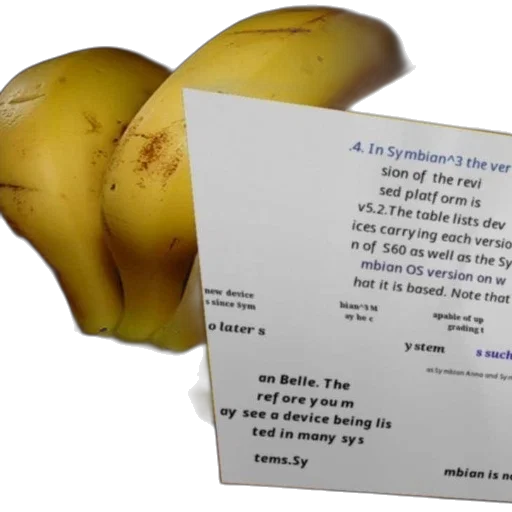 .4. In Symbian^3 the ver
sion of the revi
sed platform is
v5.2.The table lists dev
ices carrying each versio
n of S60 as well as the Sy
mbian OS version on w
hat it is based. Note that
new device
s since Sym
bian^3 M
ay be c
apable of up
grading t
o later s
ystem
s such
as Symbian Anna and Sym
an Belle. The
refore you m
ay see a device being lis
ted in many sys
tems.Sy
mbian is no